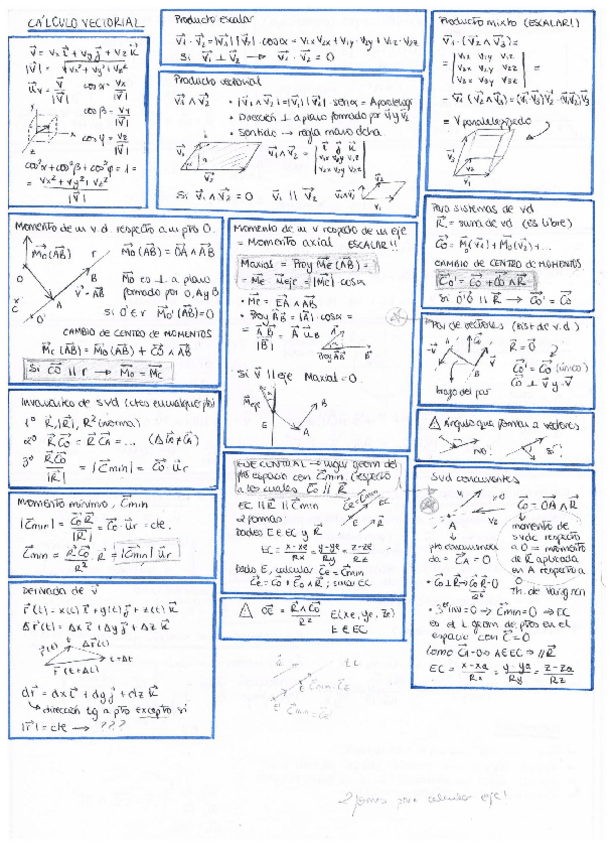 CÁLCULO VECTORIAL
v⃗ = vx i⃗ + vy j⃗ + vz k⃗
|v⃗| = √(vx² + vy² + vz²)
u⃗v = v⃗/|v⃗| cosα = vx/|v⃗|
cosβ = vy/|v⃗|
cosγ = vz/|v⃗|
cos²α + cos²β + cos²γ = 1 =
= (vx² + vy² + vz²)/|v⃗|
Producto escalar
v⃗1 · v⃗2 = |v⃗1| |v⃗2| · cosα = v1x v2x + v1y · v2y + v1z · v2z
Si v⃗1 ⊥ v⃗2 → v⃗1 · v⃗2 = 0
Producto vectorial
v⃗1 ∧ v⃗2 • |v⃗1 ∧ v⃗2| = |v⃗1| |v⃗2| · senα = Aparalelogr
• Dirección ⊥ a plano formado por v⃗1 y v⃗2
• Sentido → regla mano dcha.
v⃗1 ∧ v⃗2 = | i⃗ j⃗ k⃗
v1x v1y v1z
v2x v2y v2z |
Si v⃗1 ∧ v⃗2 = 0 v⃗1 || v⃗2
Producto mixto (ESCALAR!!)
v⃗1 · (v⃗2 ∧ v⃗3) =
= | v1x v1y v1z
v2x v2y v2z
v3x v3y v3z | =
= V paralelepípedo
Momento de un v.d. respecto a un pto O.
M⃗o (A⃗B) M⃗o (A⃗B) = O⃗A ∧ A⃗B
M⃗o es ⊥ a plano
formado por O, A y B
v⃗ = A⃗B si O' ∈ r M⃗o' (A⃗B) = 0
CAMBIO DE CENTRO DE MOMENTOS
M⃗c (A⃗B) = M⃗o (A⃗B) + C⃗O ∧ A⃗B
Si C⃗O || r → M⃗o = M⃗c
Momento de un v respecto de un eje
= Momento axial ESCALAR!!
Maxial = Proy M⃗e (A⃗B) =
= M⃗e · u⃗eje = |M⃗e| cosα
• M⃗e = E⃗A ∧ A⃗B
• Proy A⃗B = |A⃗| · cosα =
Si v⃗ || eje Maxial = 0
Meje
Para sistemas de vd
R⃗ = suma de vd (es libre)
C⃗o = M⃗o (v⃗1) + M⃗o (v⃗2) + ...
CAMBIO DE CENTRO DE MOMENTOS
C⃗o' = C⃗o + C⃗O ∧ R⃗
Si O⃗'O || R⃗ → C⃗o' = C⃗o
Par de vectores (sist de v.d.)
R⃗ = 0
C⃗o' = C⃗o (único)
C⃗o ⊥ v⃗ y -v⃗
brazo del par
⚠ Ángulo que forman 2 vectores
no! sí!
Invariantes de svd (ctes en cualquier pto)
1º R⃗, |R⃗|, R² (norma)
2º R⃗ C⃗o = R⃗ C⃗A = ...
3º R⃗ C⃗o / |R⃗| = |C⃗min| = C⃗o u⃗r
Momento mínimo, C⃗min
|C⃗min| = C⃗o R⃗ / |R⃗| = C⃗o · u⃗r = cte.
C⃗min = (R⃗ C⃗o / R²) R⃗ = |C⃗min| u⃗r
EJE CENTRAL → lugar geom del
pts espacio con C⃗min (respecto
a los cuales C⃗o || R⃗
EC || R⃗ || C⃗min C⃗e = C⃗min
2 formas EC
Dados E ∈ EC y R⃗
EC = (x-xe)/Rx = (y-ye)/Ry = (z-ze)/Rz
Dado E, calcular C⃗e = C⃗min
⚠ O⃗E = R⃗ ∧ C⃗o / R² E (xe, ye, ze)
E ∈ EC
Svd concurrentes
C⃗o = O⃗A ∧ R⃗
momento
de svdc respecto
a O = momento
de R⃗ aplicada
en A respecto a
O
pto concurrencia
da = C⃗A = 0
Th. de Varignon
• C⃗o ⊥ R⃗ → C⃗o · R⃗ = 0
• 3er inv = 0 → C⃗min = 0 → EC
es el l. geom de ptos en el
espacio con C⃗ = 0
Como C⃗A = 0 → A ∈ EC → || R⃗
EC = (x-xa)/Rx = (y-ya)/Ry = (z-za)/Rz
Derivada de v⃗
r⃗(t) = x(t) i⃗ + y(t) j⃗ + z(t) k⃗
Δr⃗(t) = Δx i⃗ + Δy j⃗ + Δz k⃗
r⃗(t) Δr⃗(t)
r⃗(t+Δt) t+Δt
dr⃗ = dx i⃗ + dy j⃗ + dz k⃗
dirección tg a pto excepto si
|r⃗| = cte → ???
2 formas para calcular eje!